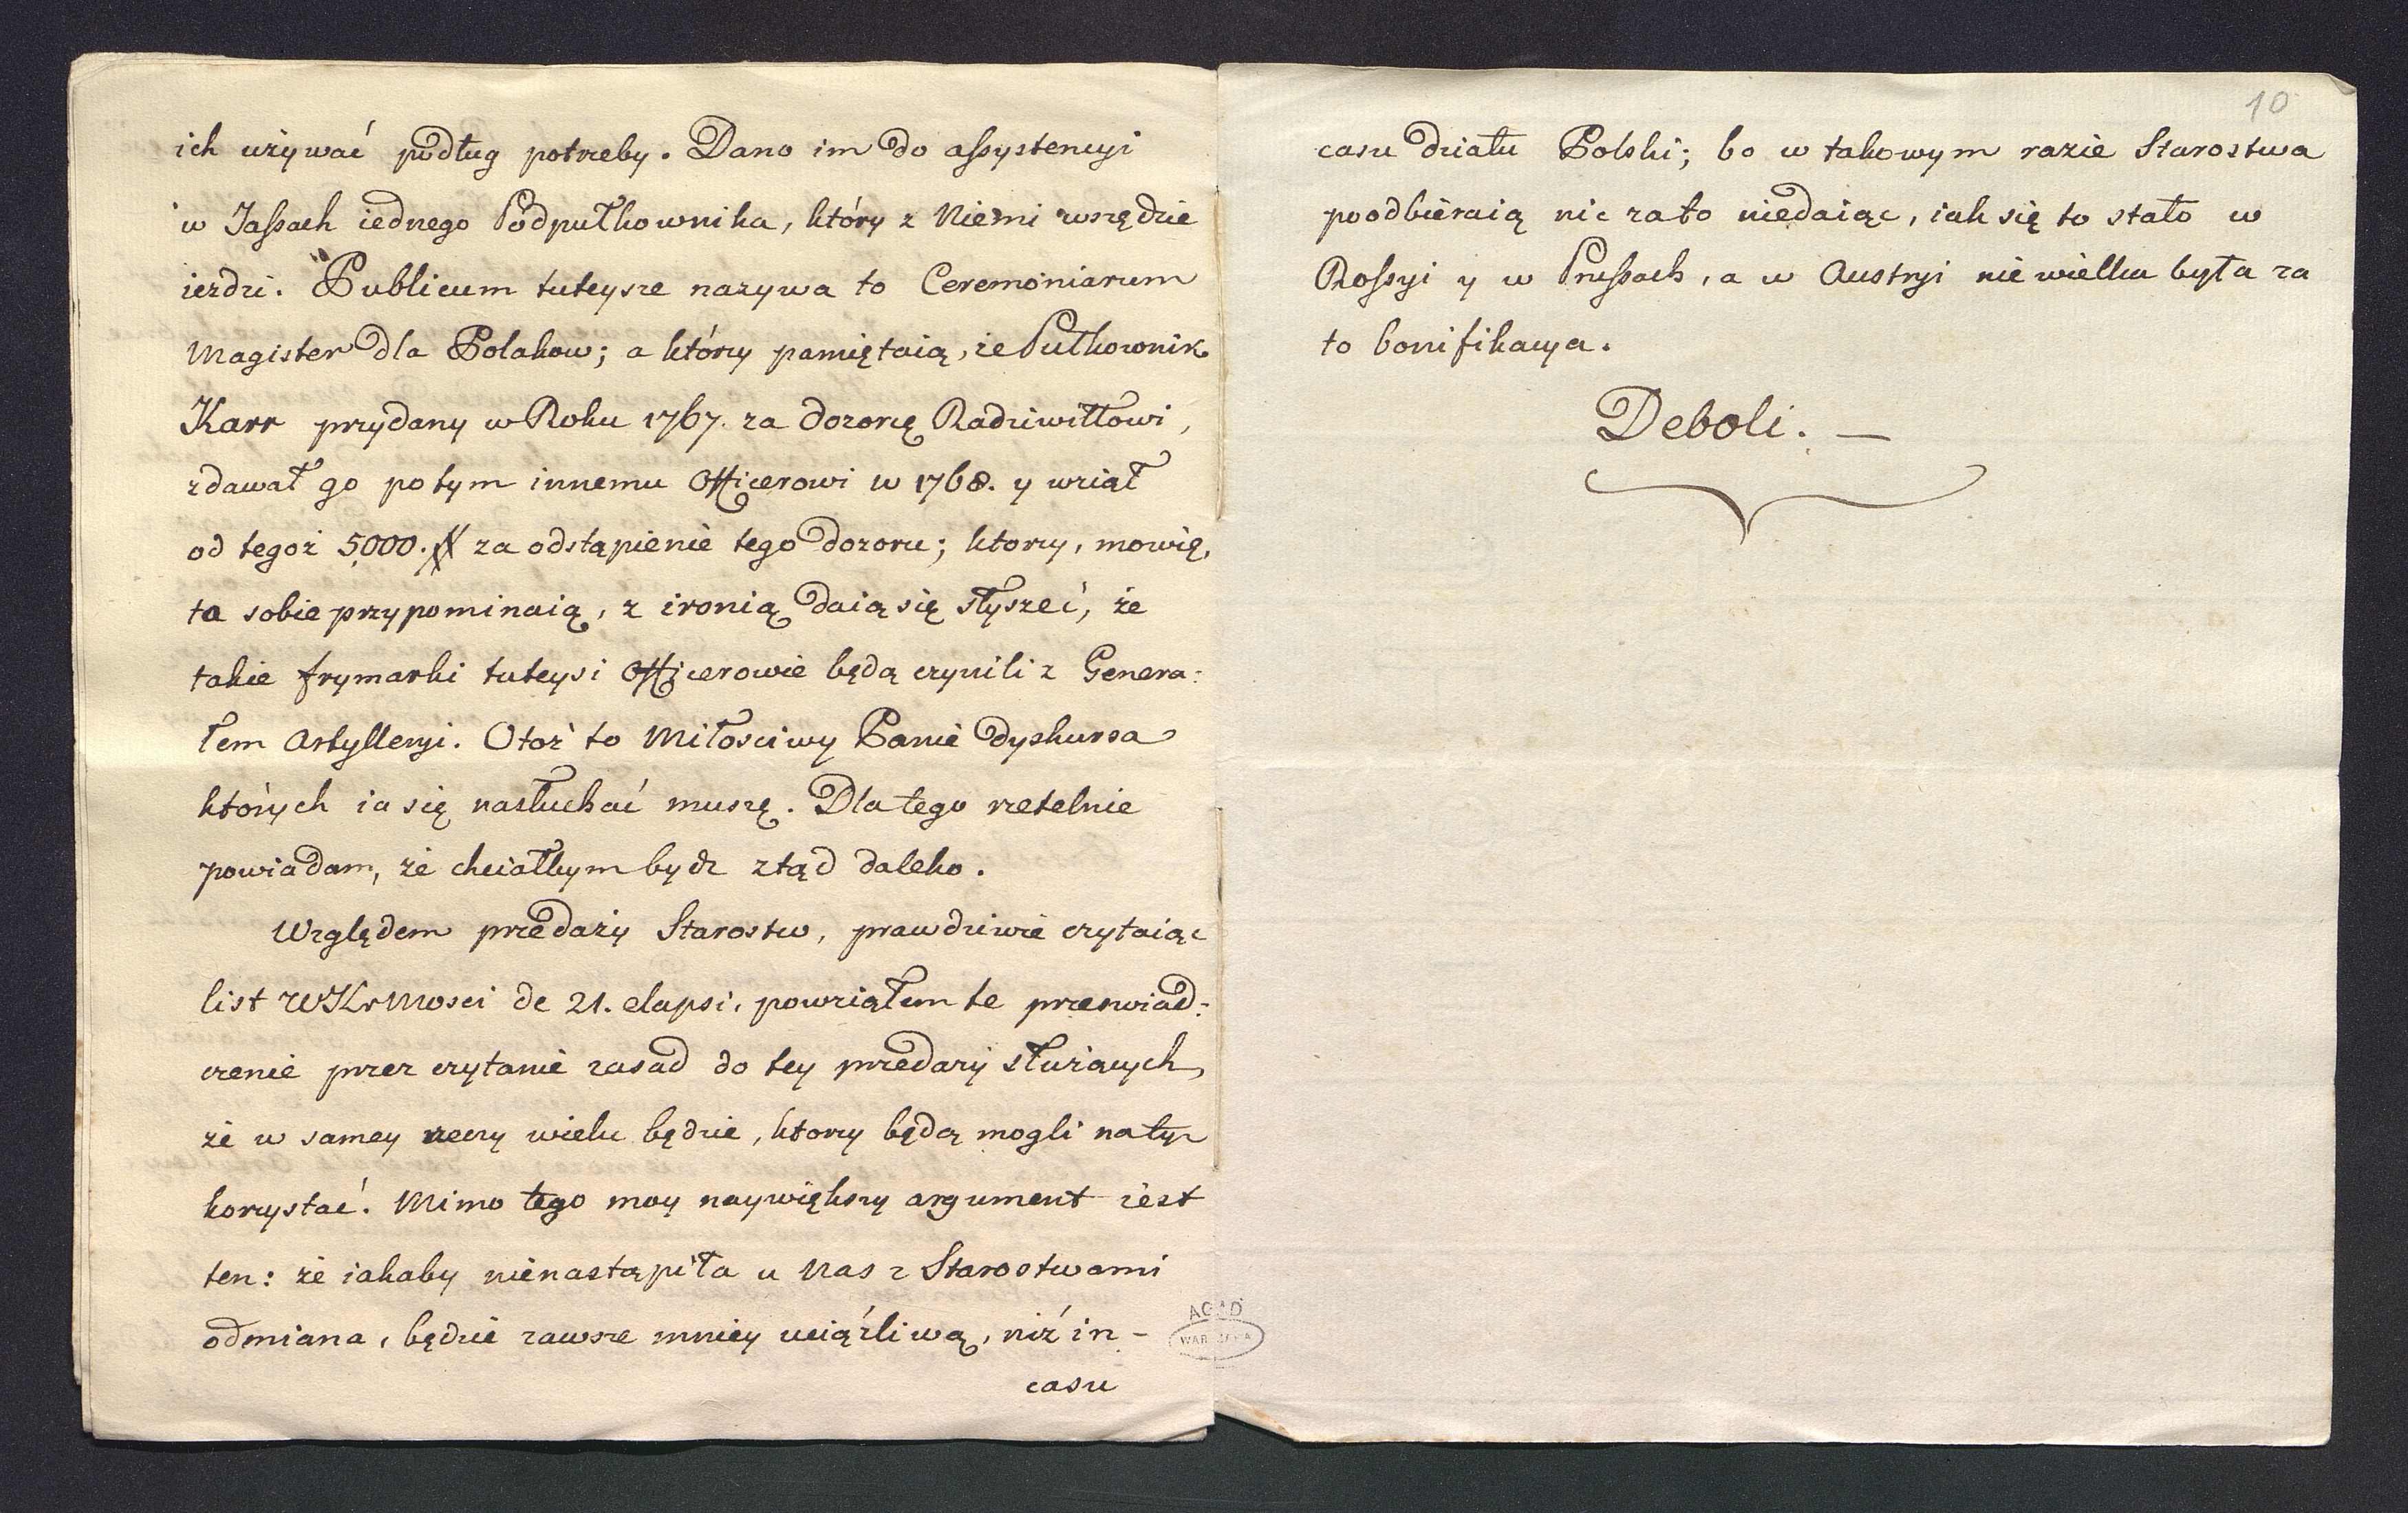 ich używać podług potrzeby. Dano im do assystencyi
w Jassach iednego Podpułkownika, który z Niemi wszędzie
ieździ. Publicum tuteysze nazywa to Ceremoniarum
Magister dla Polakow; a którzy pamiętaią, że Pułkownik
Karr przydany w Roku 1767. za dozorcę Radziwiłłowi,
zdawał go potym innemu Officerowi w 1768. y wziął
od tegoż 5,000. # za odstąpienie tego dozoru; ktorzy, mowię,
to sobie przypominaią, z ironią daią się słyszeć, że
takie frymarki tuteysi Officerowie będą czynili z Genera:
łem Artylleryi. Otoż to Miłościwy Panie dyskursa
których ia się nasłuchać muszę. Dla tego rzetelnie
powiadam, że chciałbym bydz ztąd daleko.
Względem przedaży Starostw, prawdziwie czytaiąc
list WKrMosci de 21. elapsi, powziąłem te przeswiad:
czenie przez czytanie zasad do tey przedaży służących,
że w samey rzeczy wielu będzie, ktorzy będą mogli na tym
korzystać. Mimo tego moy naywiększy argument iest
ten: że iakaby nienastąpiła u Nas z Starostwami
odmiana, będzie zawsze mniey uciążliwą, niż in-
casu
10
casu działu Polski; bo w takowym razie Starostwa
poodbieraią nic zato niedaiąc, iak się to stało w
Rossyi y w Prussach, a w Austryi nie wielka była za
to bonifikacya.
Deboli. —
AGAD
WARSZAWA